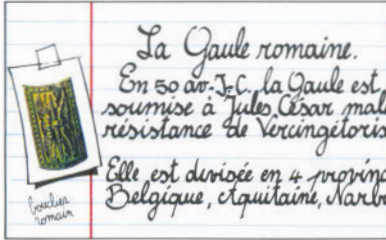 La Gaule romaine.
En 50 av. J-C. la Gaule est
soumise à Jules César
résistance de
Elle est divisée en 4
Belgique, Aquitaine,
bouclier
romain